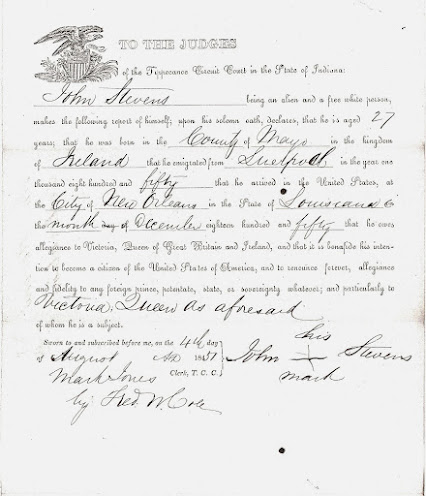 TO THE JUDGES
of the Tippecanoe Circuit Court in the State of Indiana:
John Stevens being an alien and a free white person,
makes the following report of himself; upon his solemn oath, declares, that he is aged 27
years; that he was born in the County of Mayo in the kingdom
of Ireland that he emigrated from Liverpool, in the year one
thousand eight hundred and fifty that he arrived in the United States, at
the City of New Orleans in the State of Louisiana on
the month day of December eighteen hundred and fifty that he owes
allegiance to Victoria, Queen of Great Britain and Ireland, and that it is bonafide his inten-
tion to become a citizen of the United States of America, and to renounce forever, allegiance
and fidelity to any foreign prince, potentate, state, or sovereignty whatever; and particularly to
Victoria, Queen as aforesaid
of whom he is a subject.
Sworn to and subscribed before me, on the 4th day
of August AD 1851
Mark Jones Clerk, T. C. C.
by Fred. W. Cole
his
John Stevens
mark